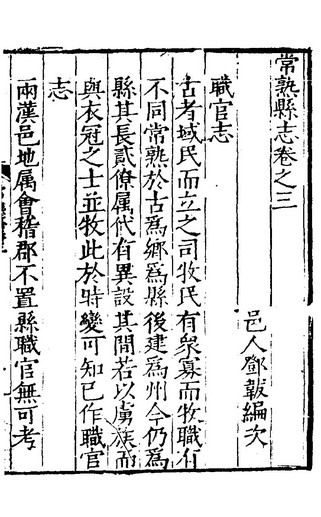 常熟縣志卷之三
邑人鄧韍編次
職官志
古者域民而立之司牧民有衆寡而牧職有
不同常熟於古為鄉為縣後建為州今仍為
縣其長貳僚属代有異設其間若以虜族而
與衣冠之士並牧此於時變可知已作職官
志
兩漢邑地属會稽郡不置縣職官無可考